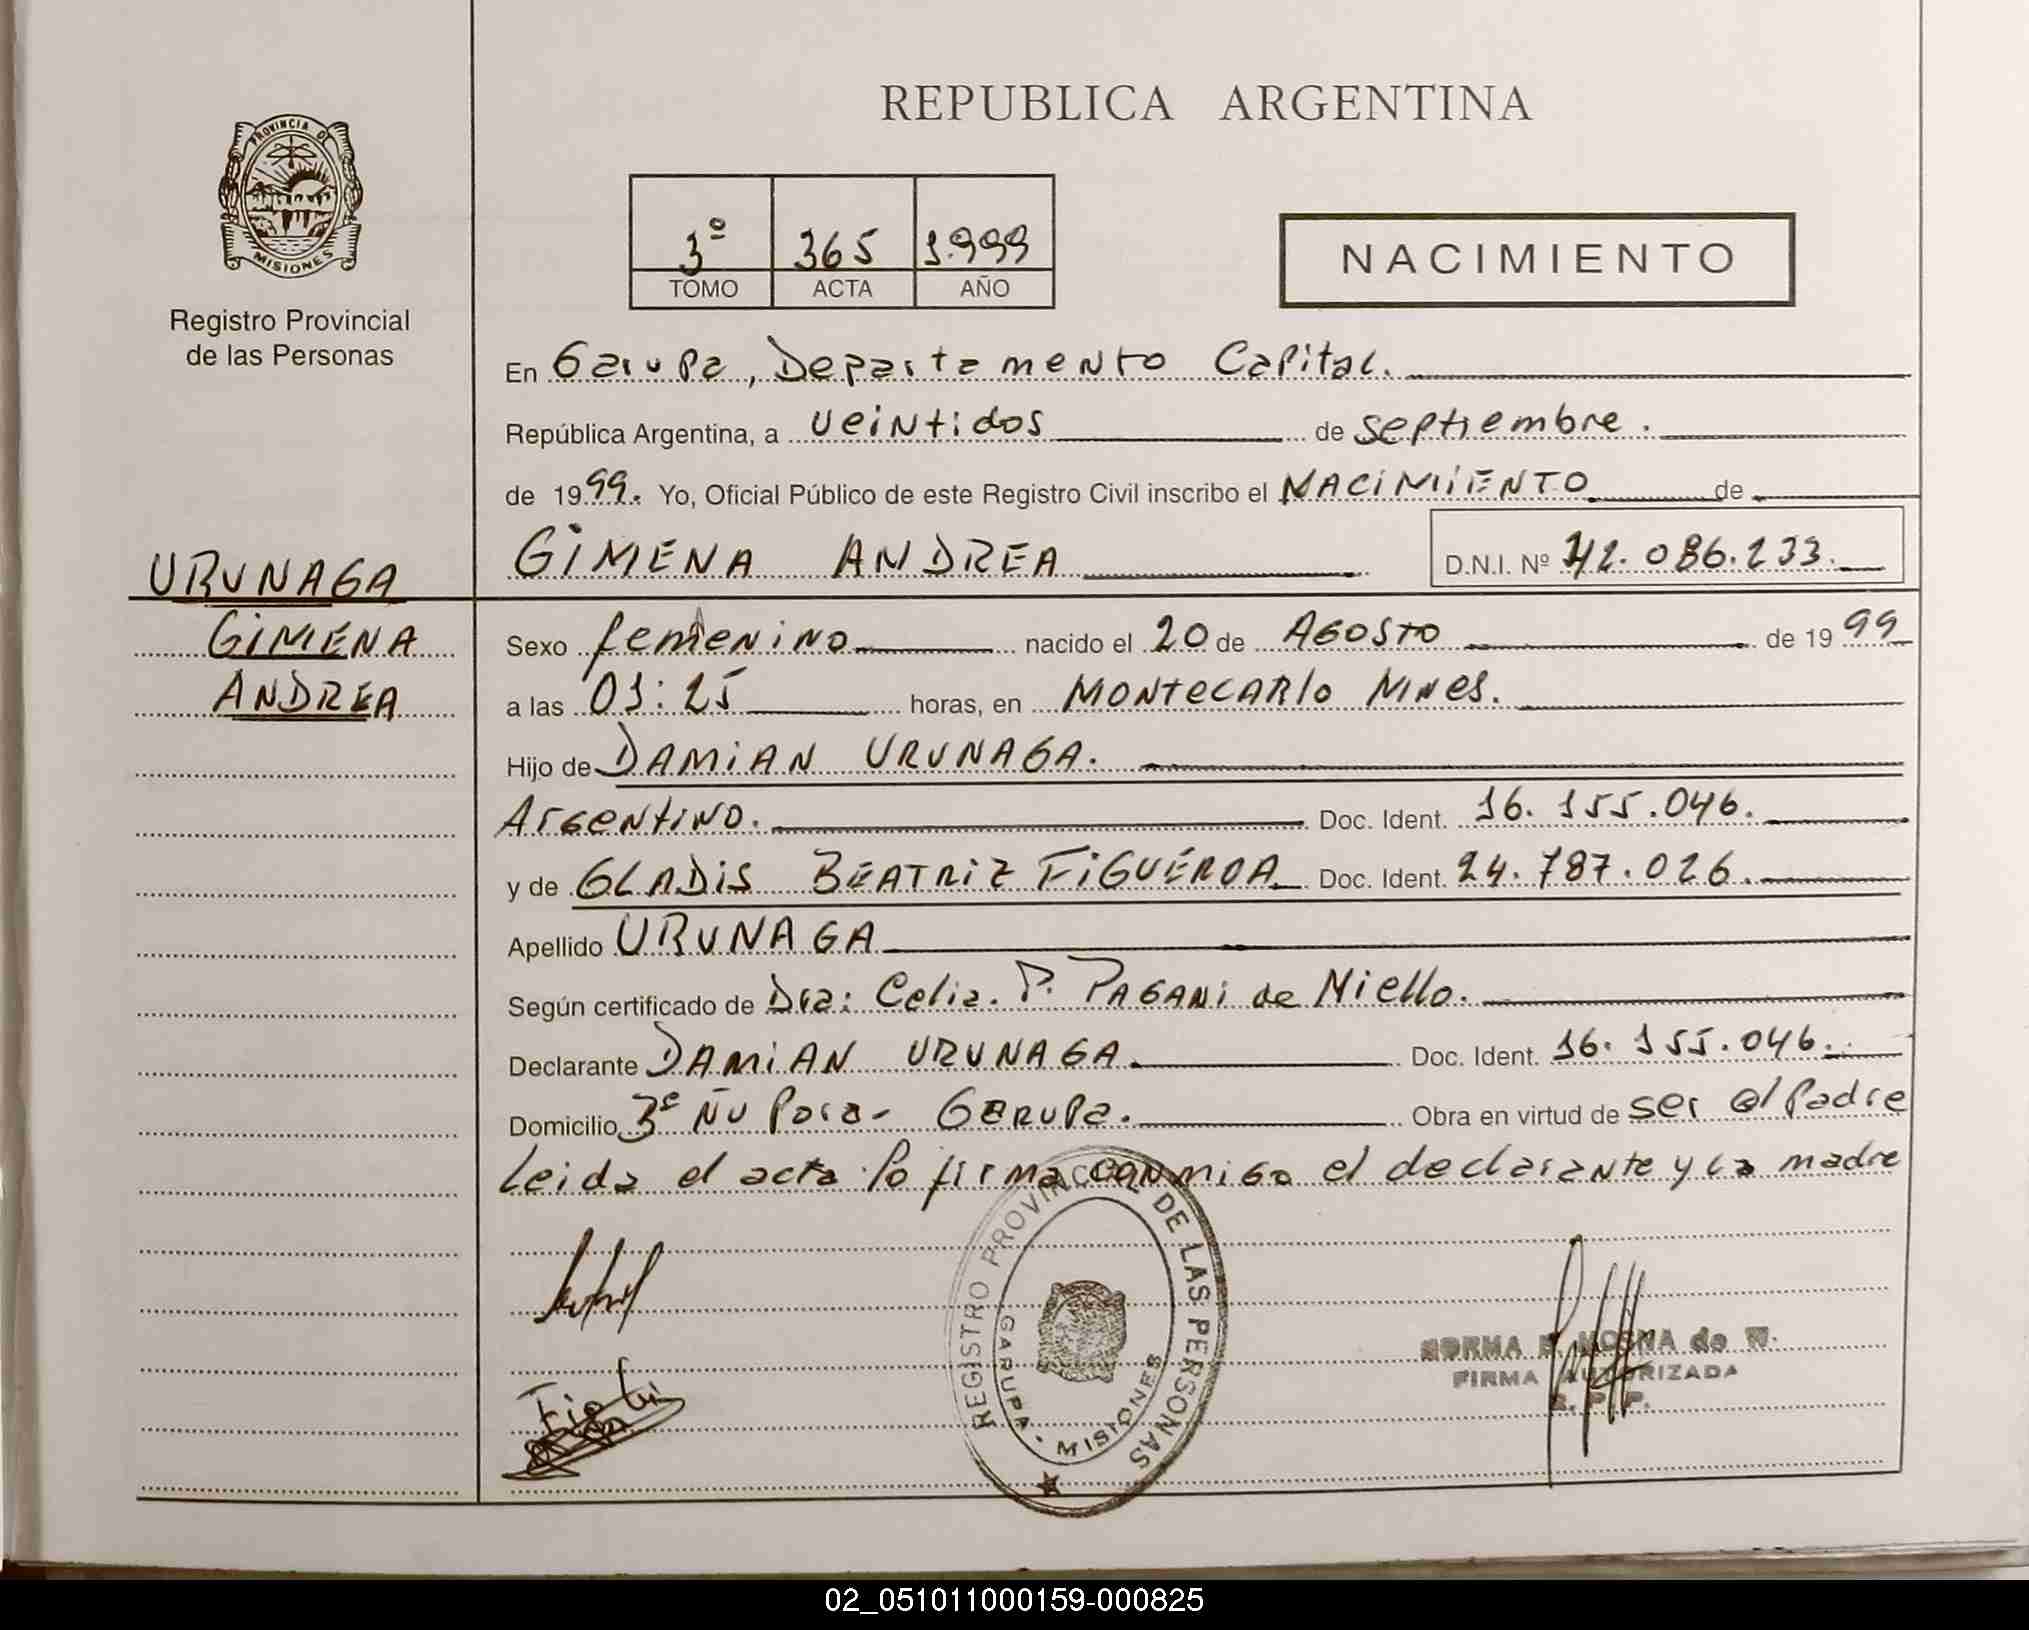 REPUBLICA ARGENTINA
PROVINCIA DE
MISIONES
Registro Provincial
de las Personas
3º 365 1.999
TOMO ACTA AÑO
NACIMIENTO
En Garupa, Departamento Capital.
República Argentina, a veintidos de septiembre.
de 1999. Yo, Oficial Público de este Registro Civil inscribo el NACIMIENTO de
GIMENA ANDREA D.N.I. Nº 42.086.233.
URUNAGA
GIMENA
ANDREA
Sexo femenino nacido el 20 de AGOSTO de 1999
a las 01:25 horas, en MONTECARlo Mnes.
Hijo de DAMIAN URUNAGA.
Argentino. Doc. Ident. 16.155.046.
y de GLADIS BEATRIZ FIGUEROA Doc. Ident. 24.787.026.
Apellido URUNAGA
Según certificado de Dra: Celia. P. PAGANi de Niello.
Declarante DAMIAN URUNAGA Doc. Ident. 16.155.046.
Domicilio Ñu Pora- GARUPa. Obra en virtud de ser el Padre
Leida el acta lo firma conmigo el declarante y la madre
REGISTRO PROVINCIAL DE LAS PERSONAS
GARUPA - MISIONES
NORMA de W.
FIRMA AUTORIZADA
02_051011000159-000825